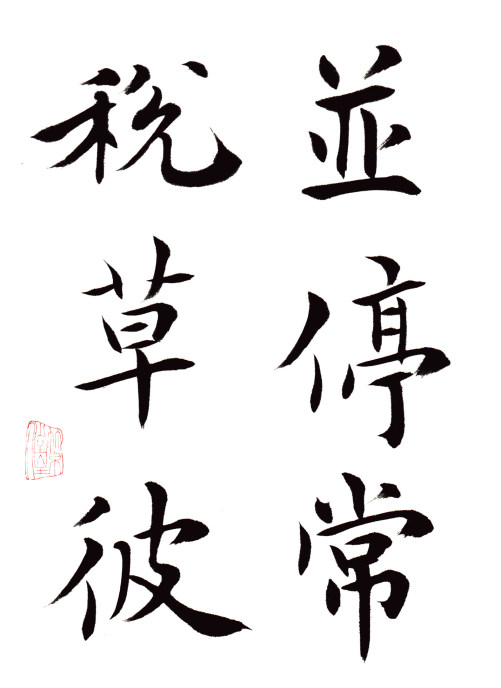 並停常
税草彼